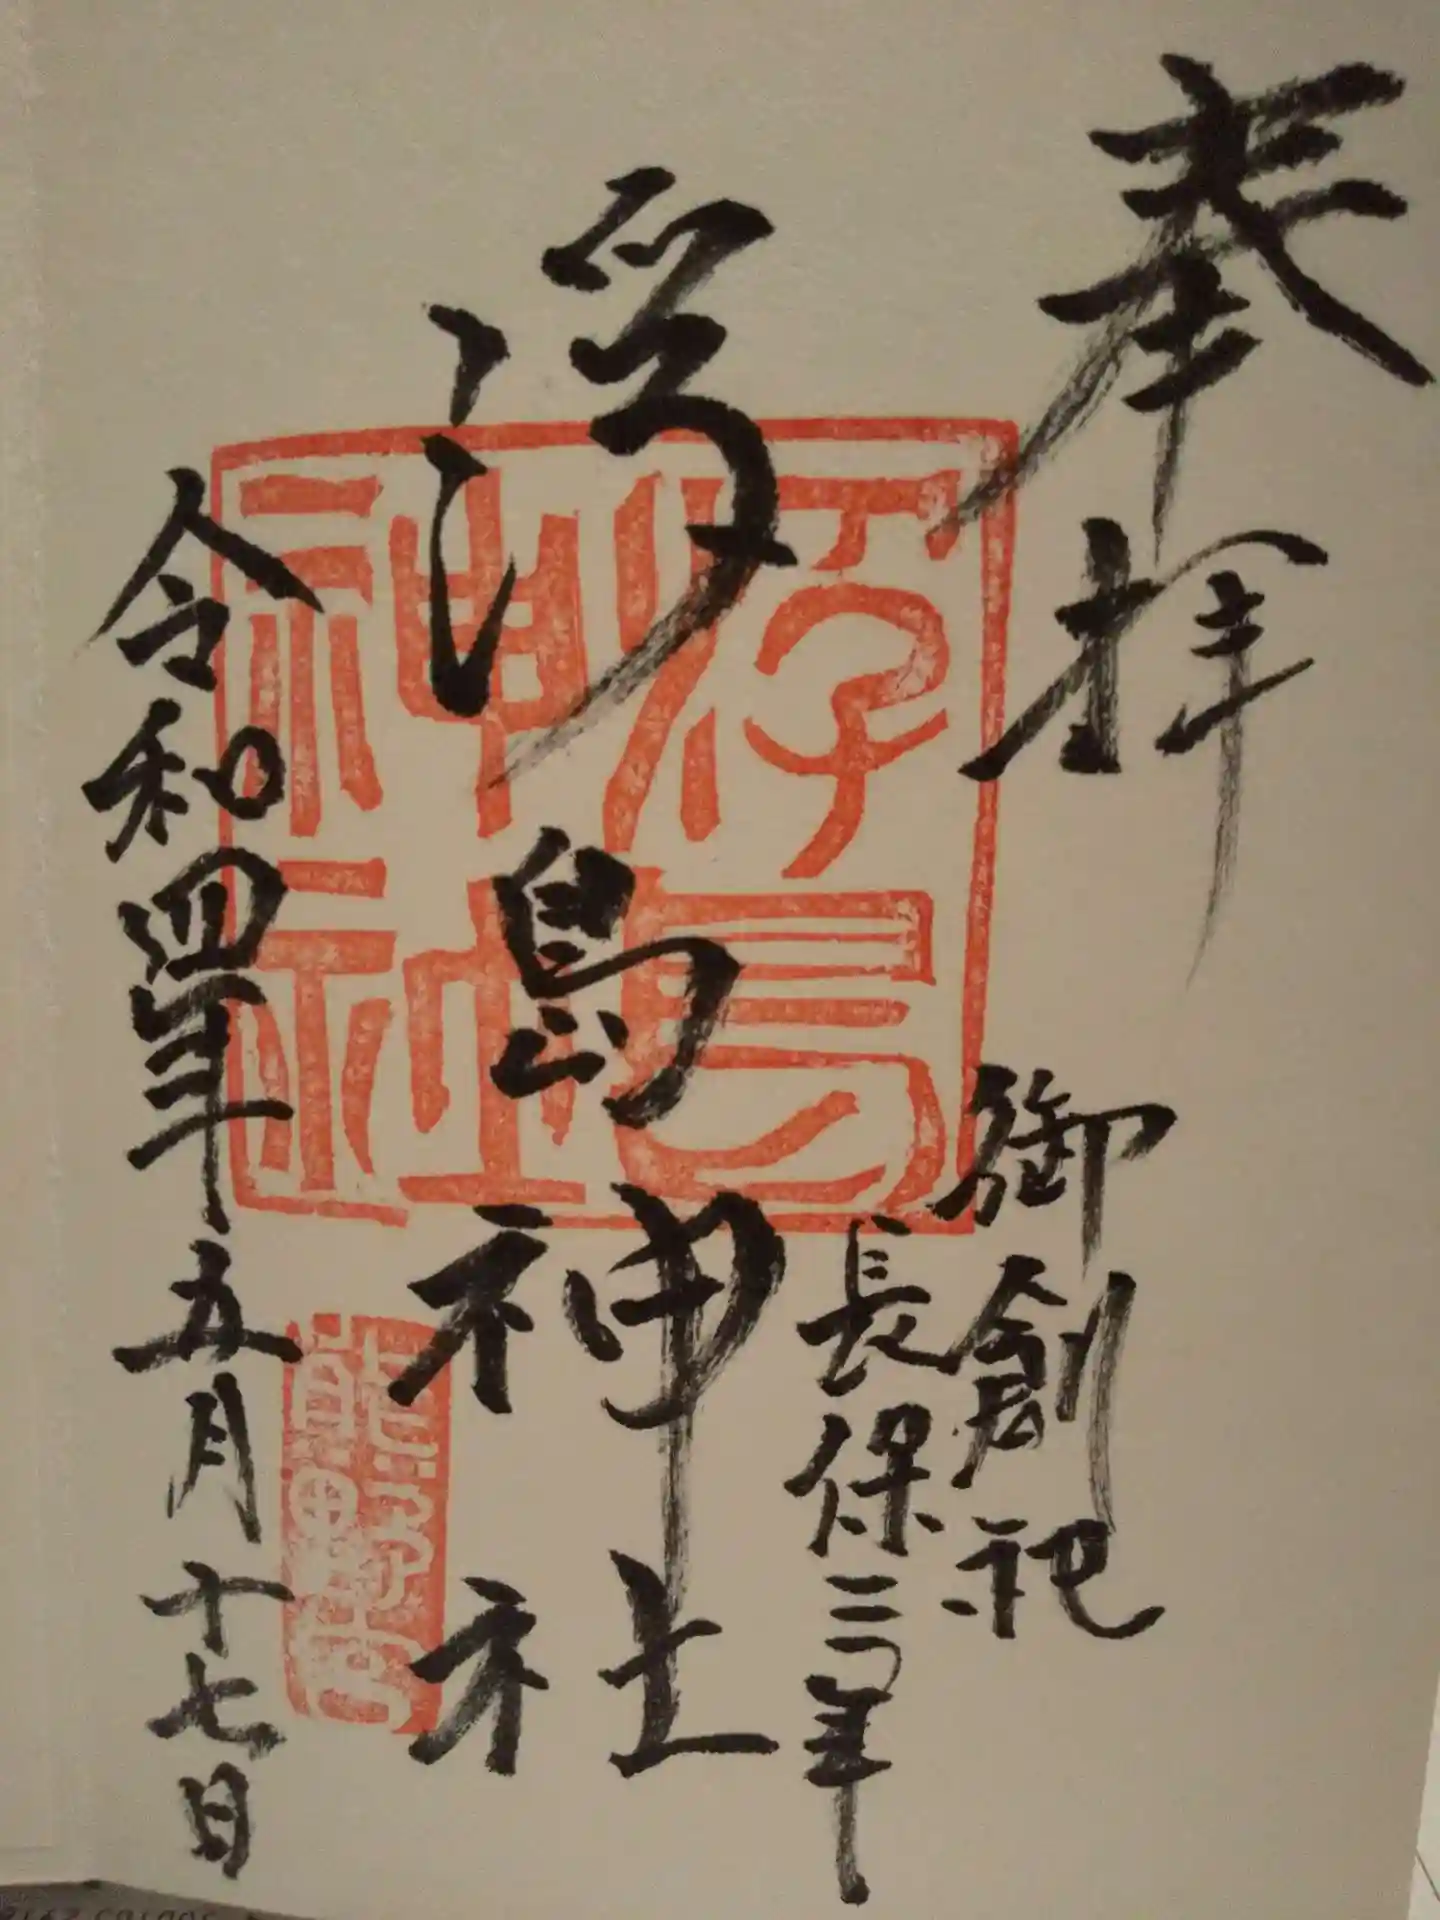 奉拝
御創祀
長保三年
浮島神社
浮島
神社
熊野宮
令和四年五月十七日